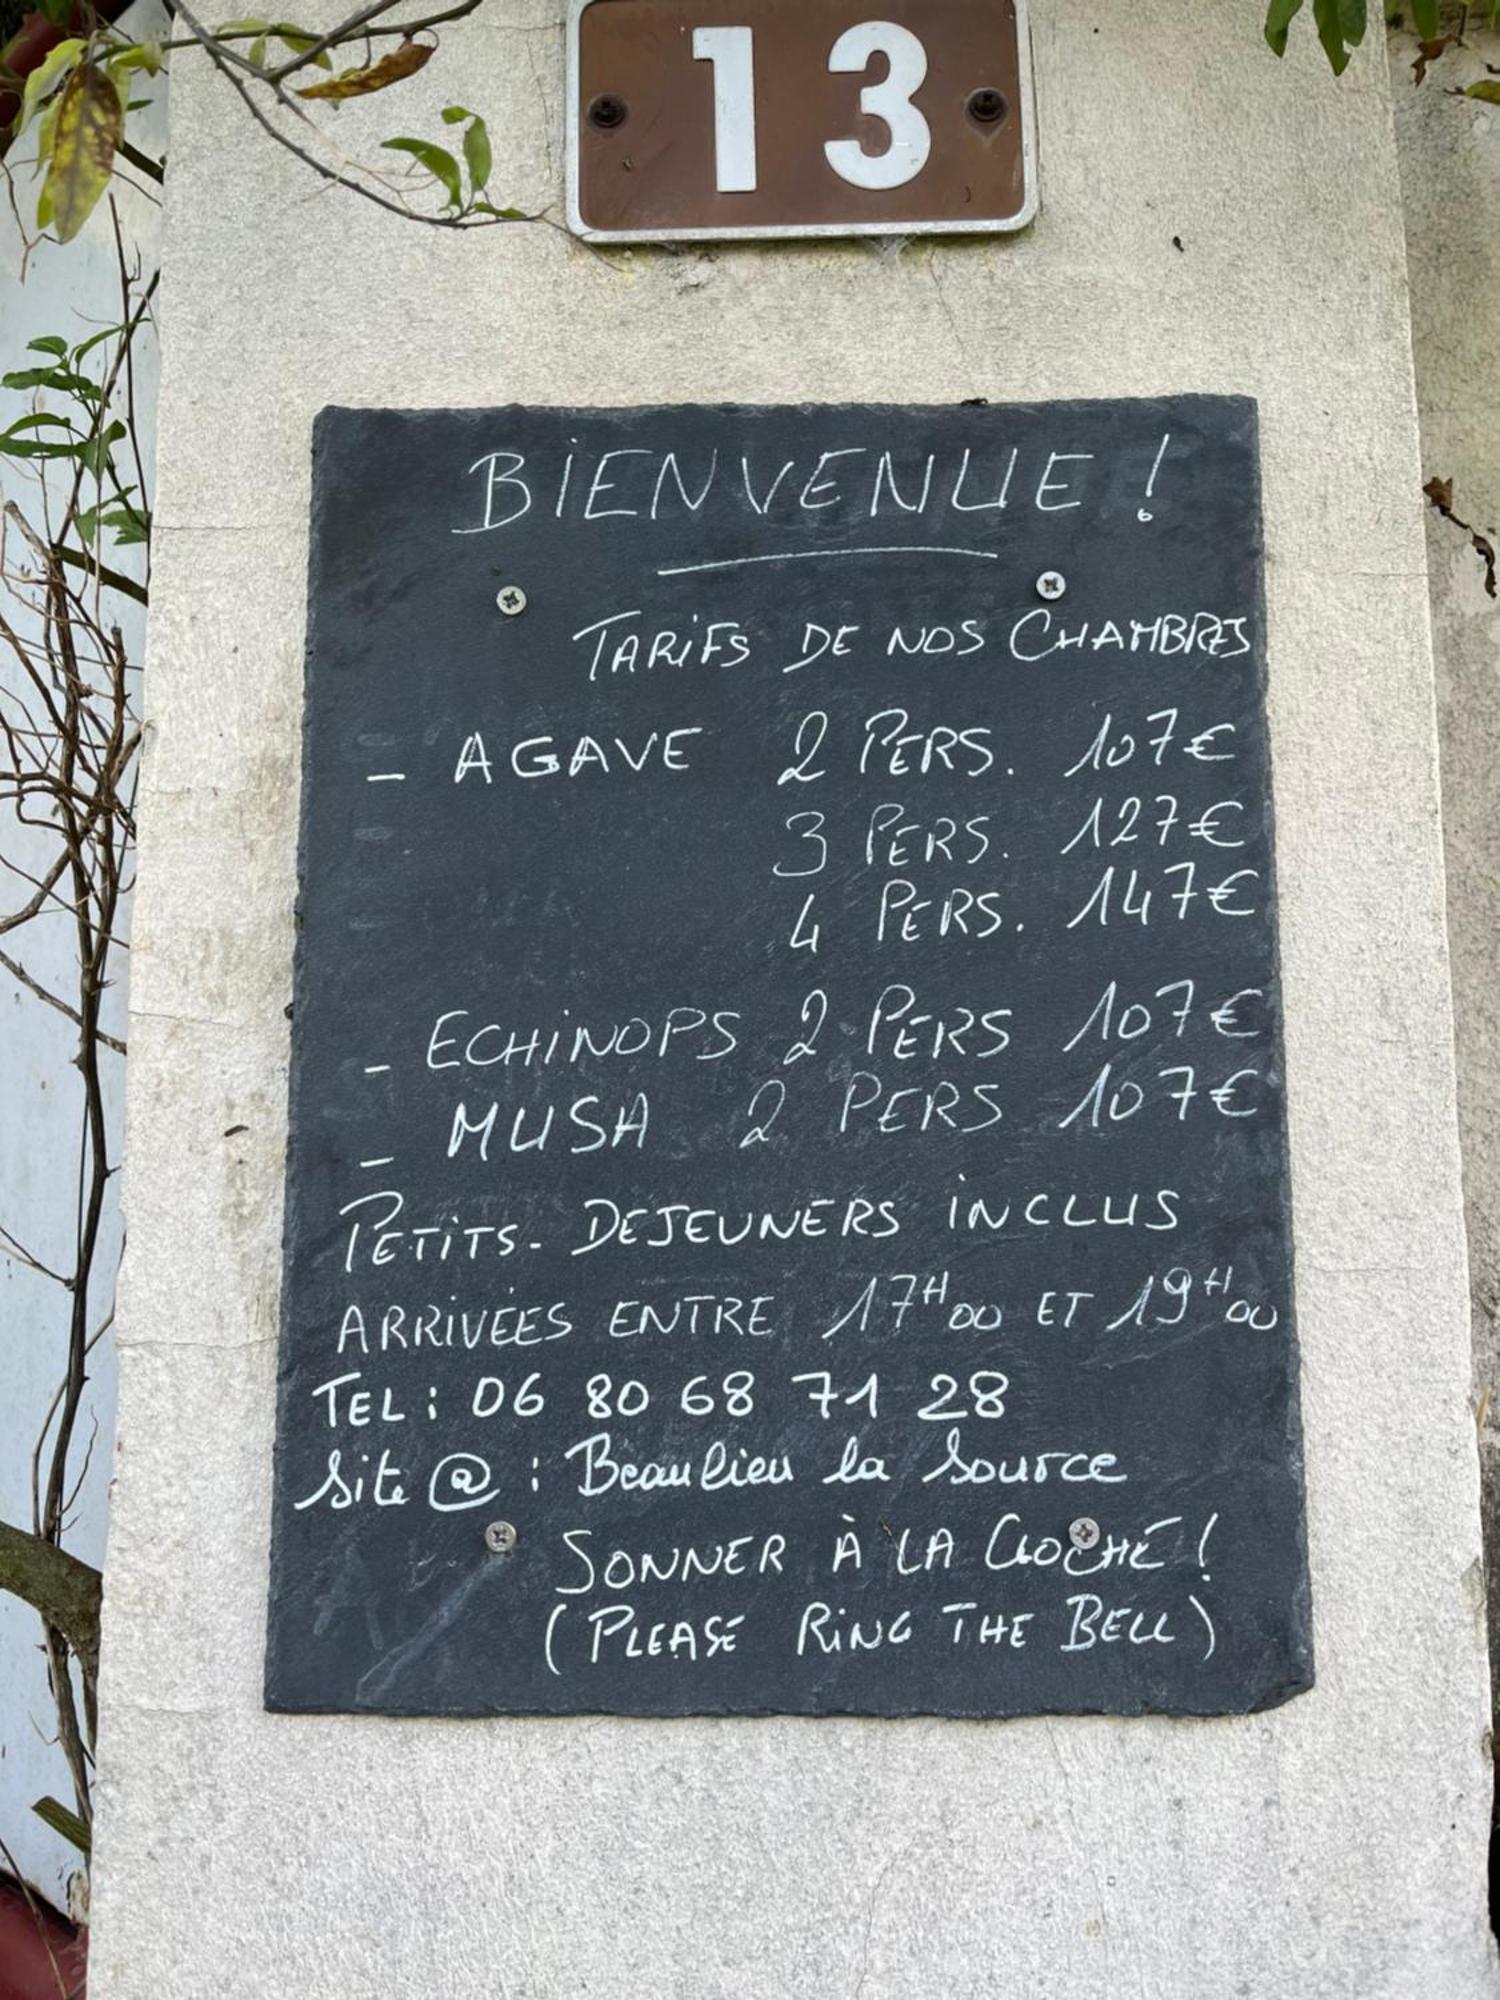 13
BIENVENUE !
TARIFS DE NOS CHAMBRES
- AGAVE 2 PERS. 107€
3 PERS. 127€
4 PERS. 147€
- ECHINOPS 2 PERS 107€
- MUSA 2 PERS 107€
PETITS-DEJEUNERS INCLUS
ARRIVÉES ENTRE 17H00 ET 19H00
TEL: 06 80 68 71 28
Site @ : Beaulieu la Source
SONNER À LA CLOCHE !
(PLEASE RING THE BELL)